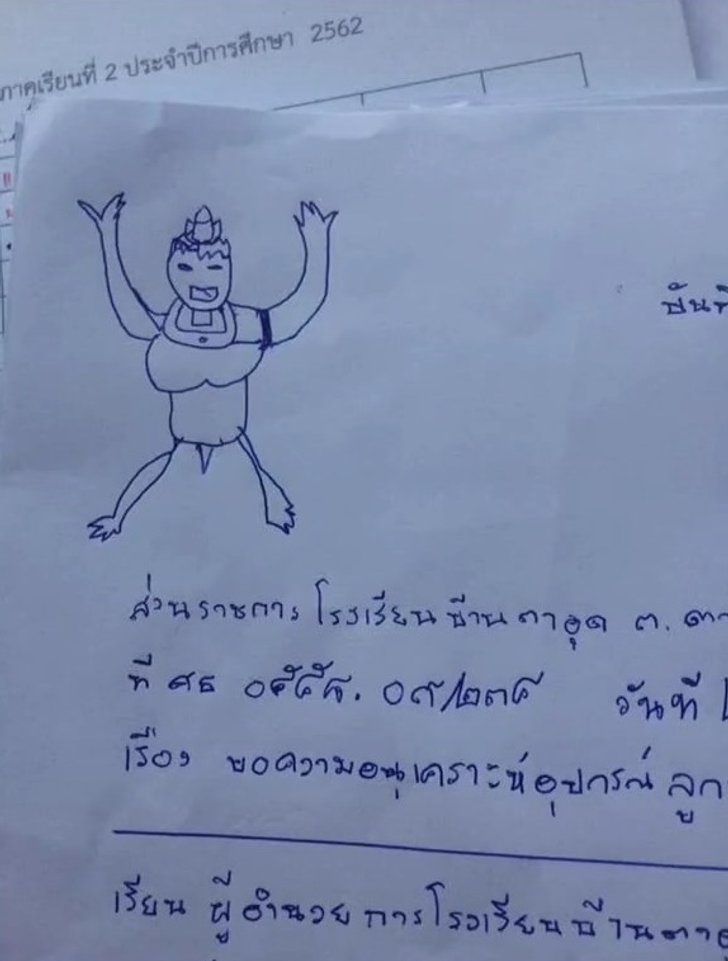 ภาคเรียนที่ 2 ประจำปีการศึกษา 2562
บันทึ
ส่วนราชการ โรงเรียนบ้านตาอุด ต. ตา
ที่ ศธ ๐๔๕๕. ๐๙/๒๓๕ วันที่
เรื่อง ขอความอนุเคราะห์อุปกรณ์ ลูก
เรียน ผู้อำนวยการโรงเรียนบ้านตาอุ